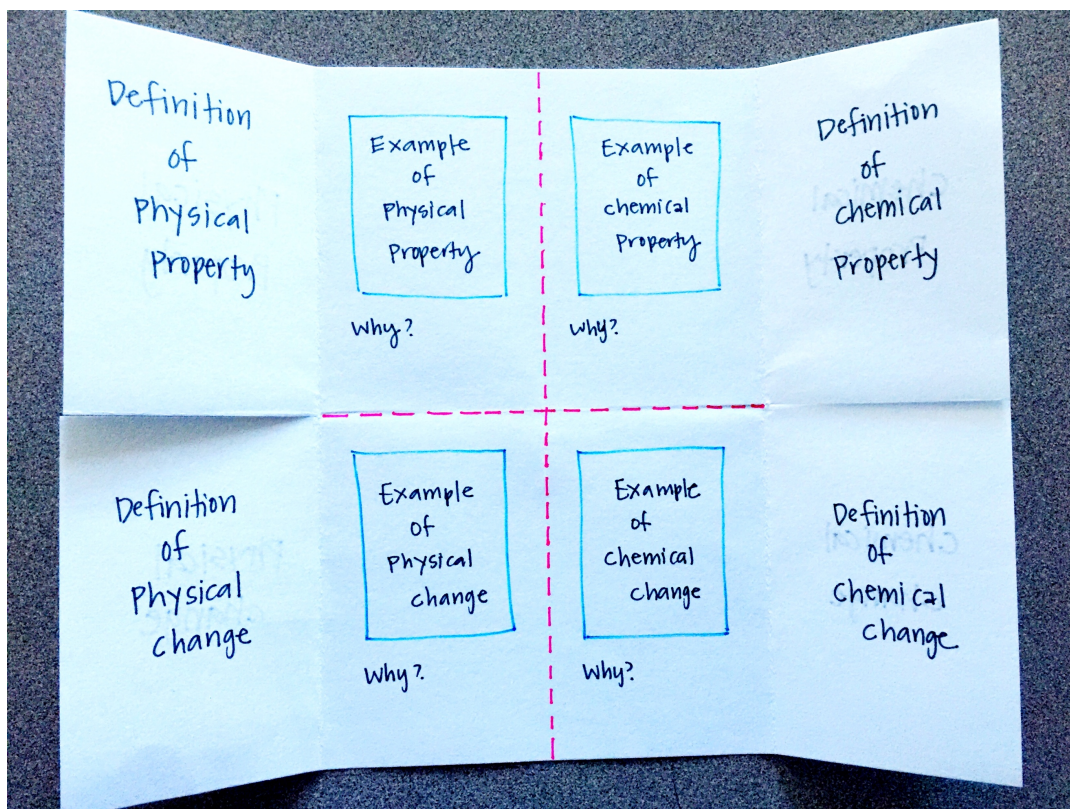 Definition
of
Physical
Property
Example
of
Physical
Property
Why?
Example
of
chemical
Property
Why?
Definition
of
chemical
Property
Definition
of
Physical
change
Example
of
Physical
change
Why?
Example
of
Chemical
change
Why?
Definition
of
Chemical
Change